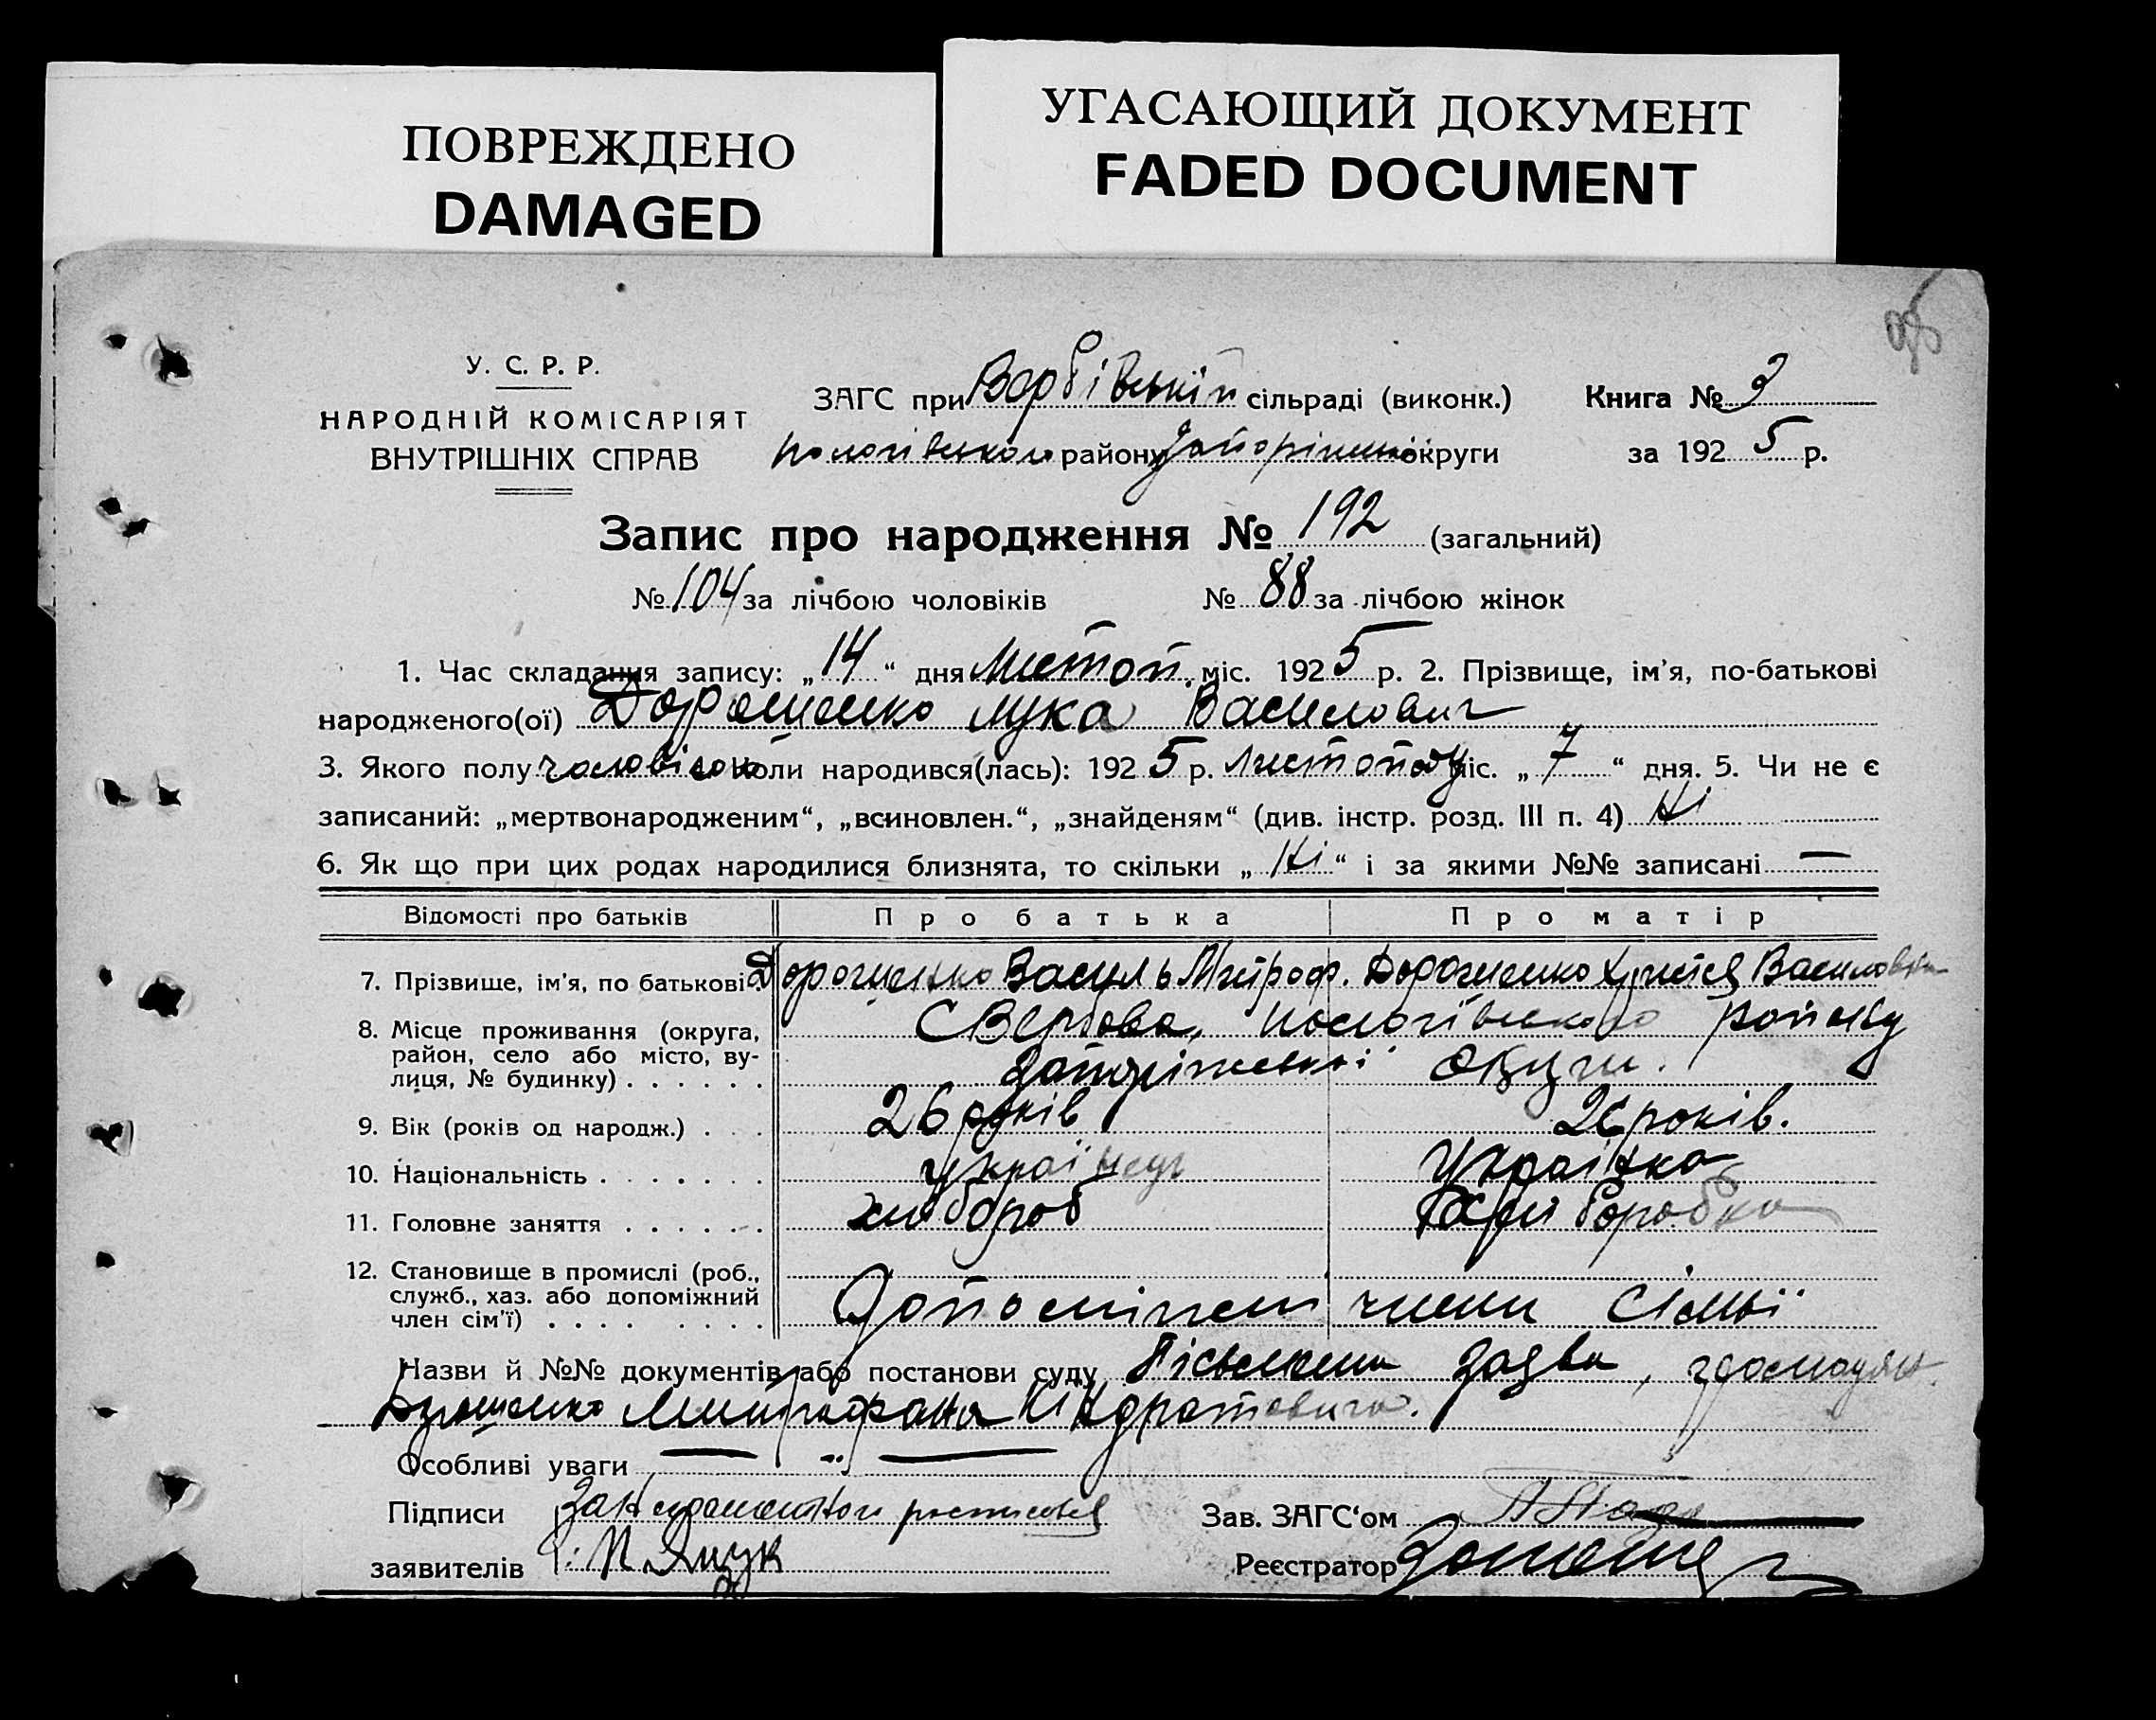 ПОВРЕЖДЕНО
DAMAGED
УГАСАЮЩИЙ ДОКУМЕНТ
FADED DOCUMENT
У. С. Р. Р.
НАРОДНІЙ КОМІСАРІЯТ
ВНУТРІШНІХ СПРАВ
ЗАГС при Вербівській сільраді (виконк.) Книга № 3
Пологівського району Запоріжської округи за 192 5 р.
Запис про народження № 192 (загальний)
№ 104 за лічбою чоловіків № 88 за лічбою жінок
1. Час складання запису: „ 14 “ дня Листоп. міс. 192 5 р. 2. Прізвище, ім'я, по-батькові
народженого(ої) Дорошенко Лука Василович
3. Якого полу чоловічого коли народився(лась): 192 5 р. Листопаду міс. „ 7 “ дня. 5. Чи не є
записаний: „мертвонародженим“, „всиновлен.“, „знайденям“ (див. інстр. розд. III п. 4) Ні
6. Як що при цих родах народилися близнята, то скільки „ Ні “ і за якими №№ записані —
Відомості про батьків Про батька Про матір
7. Прізвище, ім'я, по батькові Дорошенко Василь Митроф. Дорошенко Василовна
8. Місце проживання (округа,
район, село або місто, ву-
лиця, № будинку) . . . . . .
С Вербова, Пологівського району
Запоріжської округи.
9. Вік (років од народж.) . . . 26 років 26 років.
10. Національність . . . . . . . українець Українка
11. Головне заняття . . . . . . хлібороб Хліборобка
12. Становище в промислі (роб.,
служб., хаз. або допоміжний
член сім'ї) . . . . . . . .
Допоміжні члени сімьї
Назви й №№ документів або постанови суду Пісьмена заява,
Дорошенко Митрофана Кіндратовича.
Особливі уваги — „ —
Підписи
заявителів П. Яцук
Зав. ЗАГС'ом
Реєстратор